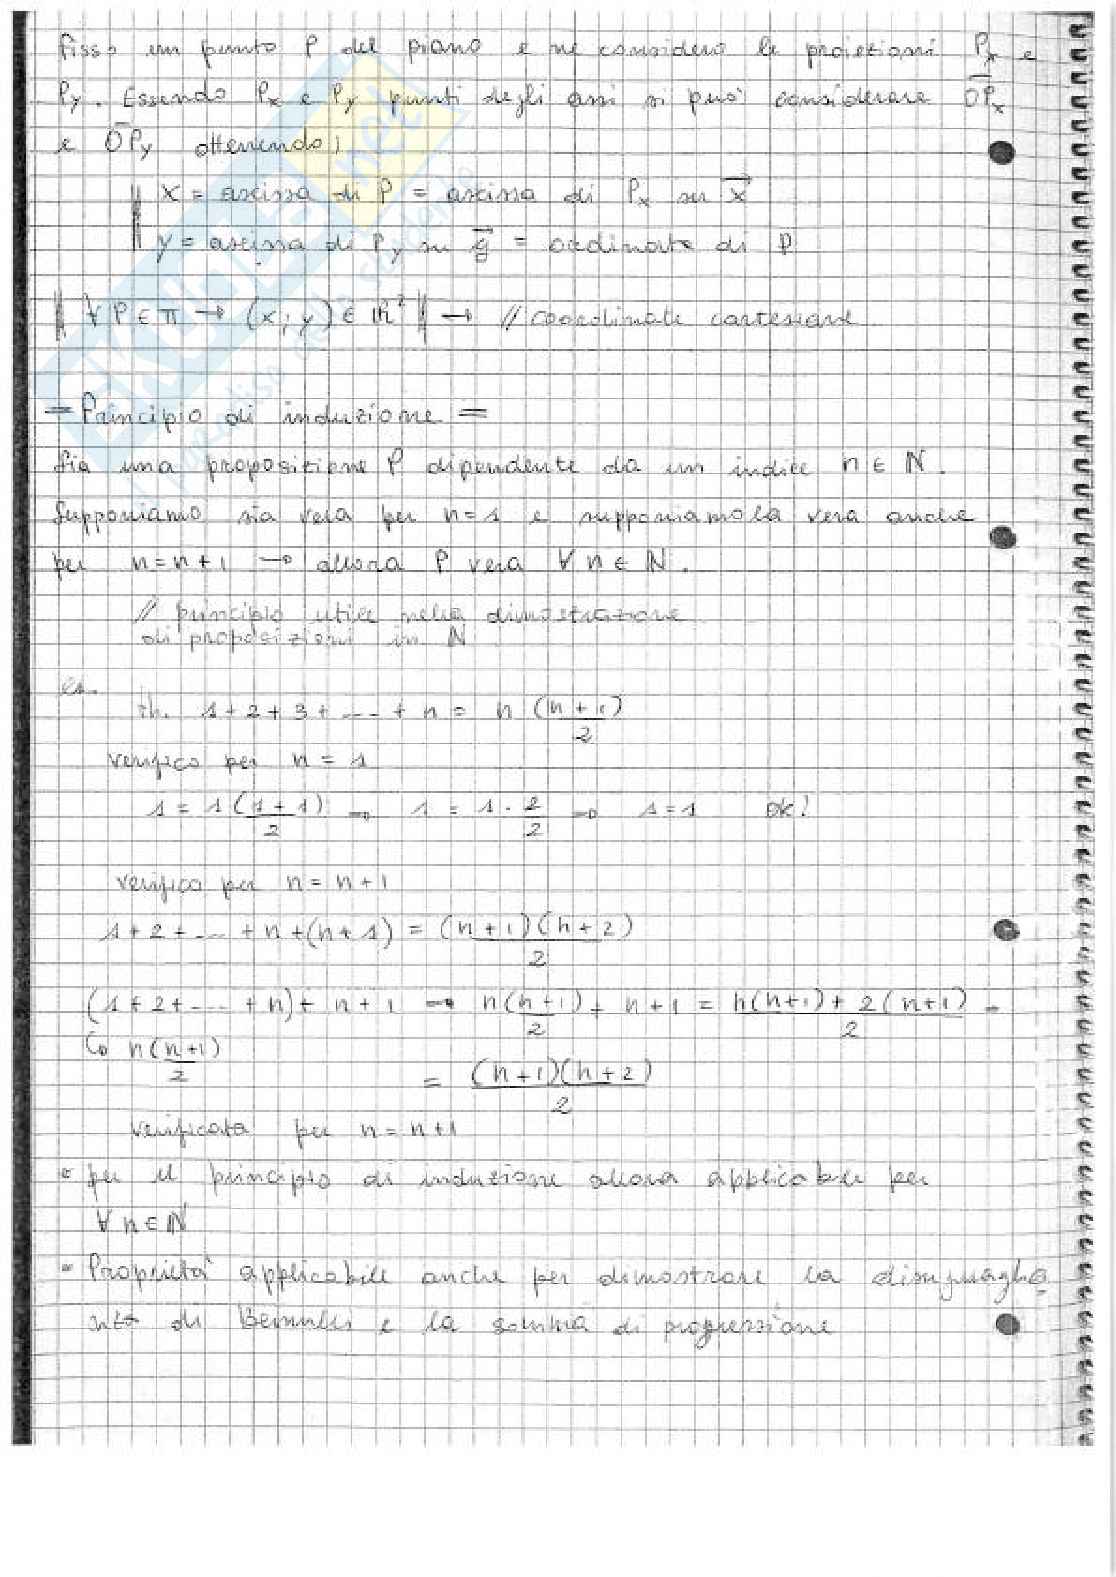 Fisso un punto P del piano e ne considero le proiezioni Px e
Py. Essendo Px e Py punti degli assi si può considerare OPx
e OPy ottenendo;
x = ascissa di P = ascissa di Px su x
y = ascissa di Py su y = ordinata di P
∀ P ∈ π → (x; y) ∈ ℝ² → // coordinate cartesiane
= Principio di induzione =
Sia una proposizione P dipendente da un indice n ∈ ℕ.
Supponiamo sia vera per n=1 e supponiamola vera anche
per n=n+1 → allora P vera ∀ n ∈ ℕ.
// principio utile nella dimostrazione
di proposizioni in ℕ
es.
th. 1+2+3+ ---- + n = n (n+1)/2
verifico per n = 1
1 = 1 (1+1)/2 → 1 = 1 · 2/2 → 1=1 OK!
verifico per n = n+1
1+2+ --- +n+(n+1) = (n+1)(n+2)/2
(1+2+---- +n)+ n+1 → n(n+1)/2 + n+1 = n(n+1)+2(n+1)/2 =
↳ n(n+1)/2
= (n+1)(n+2)/2
verificata per n=n+1
per il principio di induzione allora applicabile per
∀ n ∈ ℕ
Proprietà applicabile anche per dimostrare la disuguaglia
nza di Bernulli e la somma di progressione